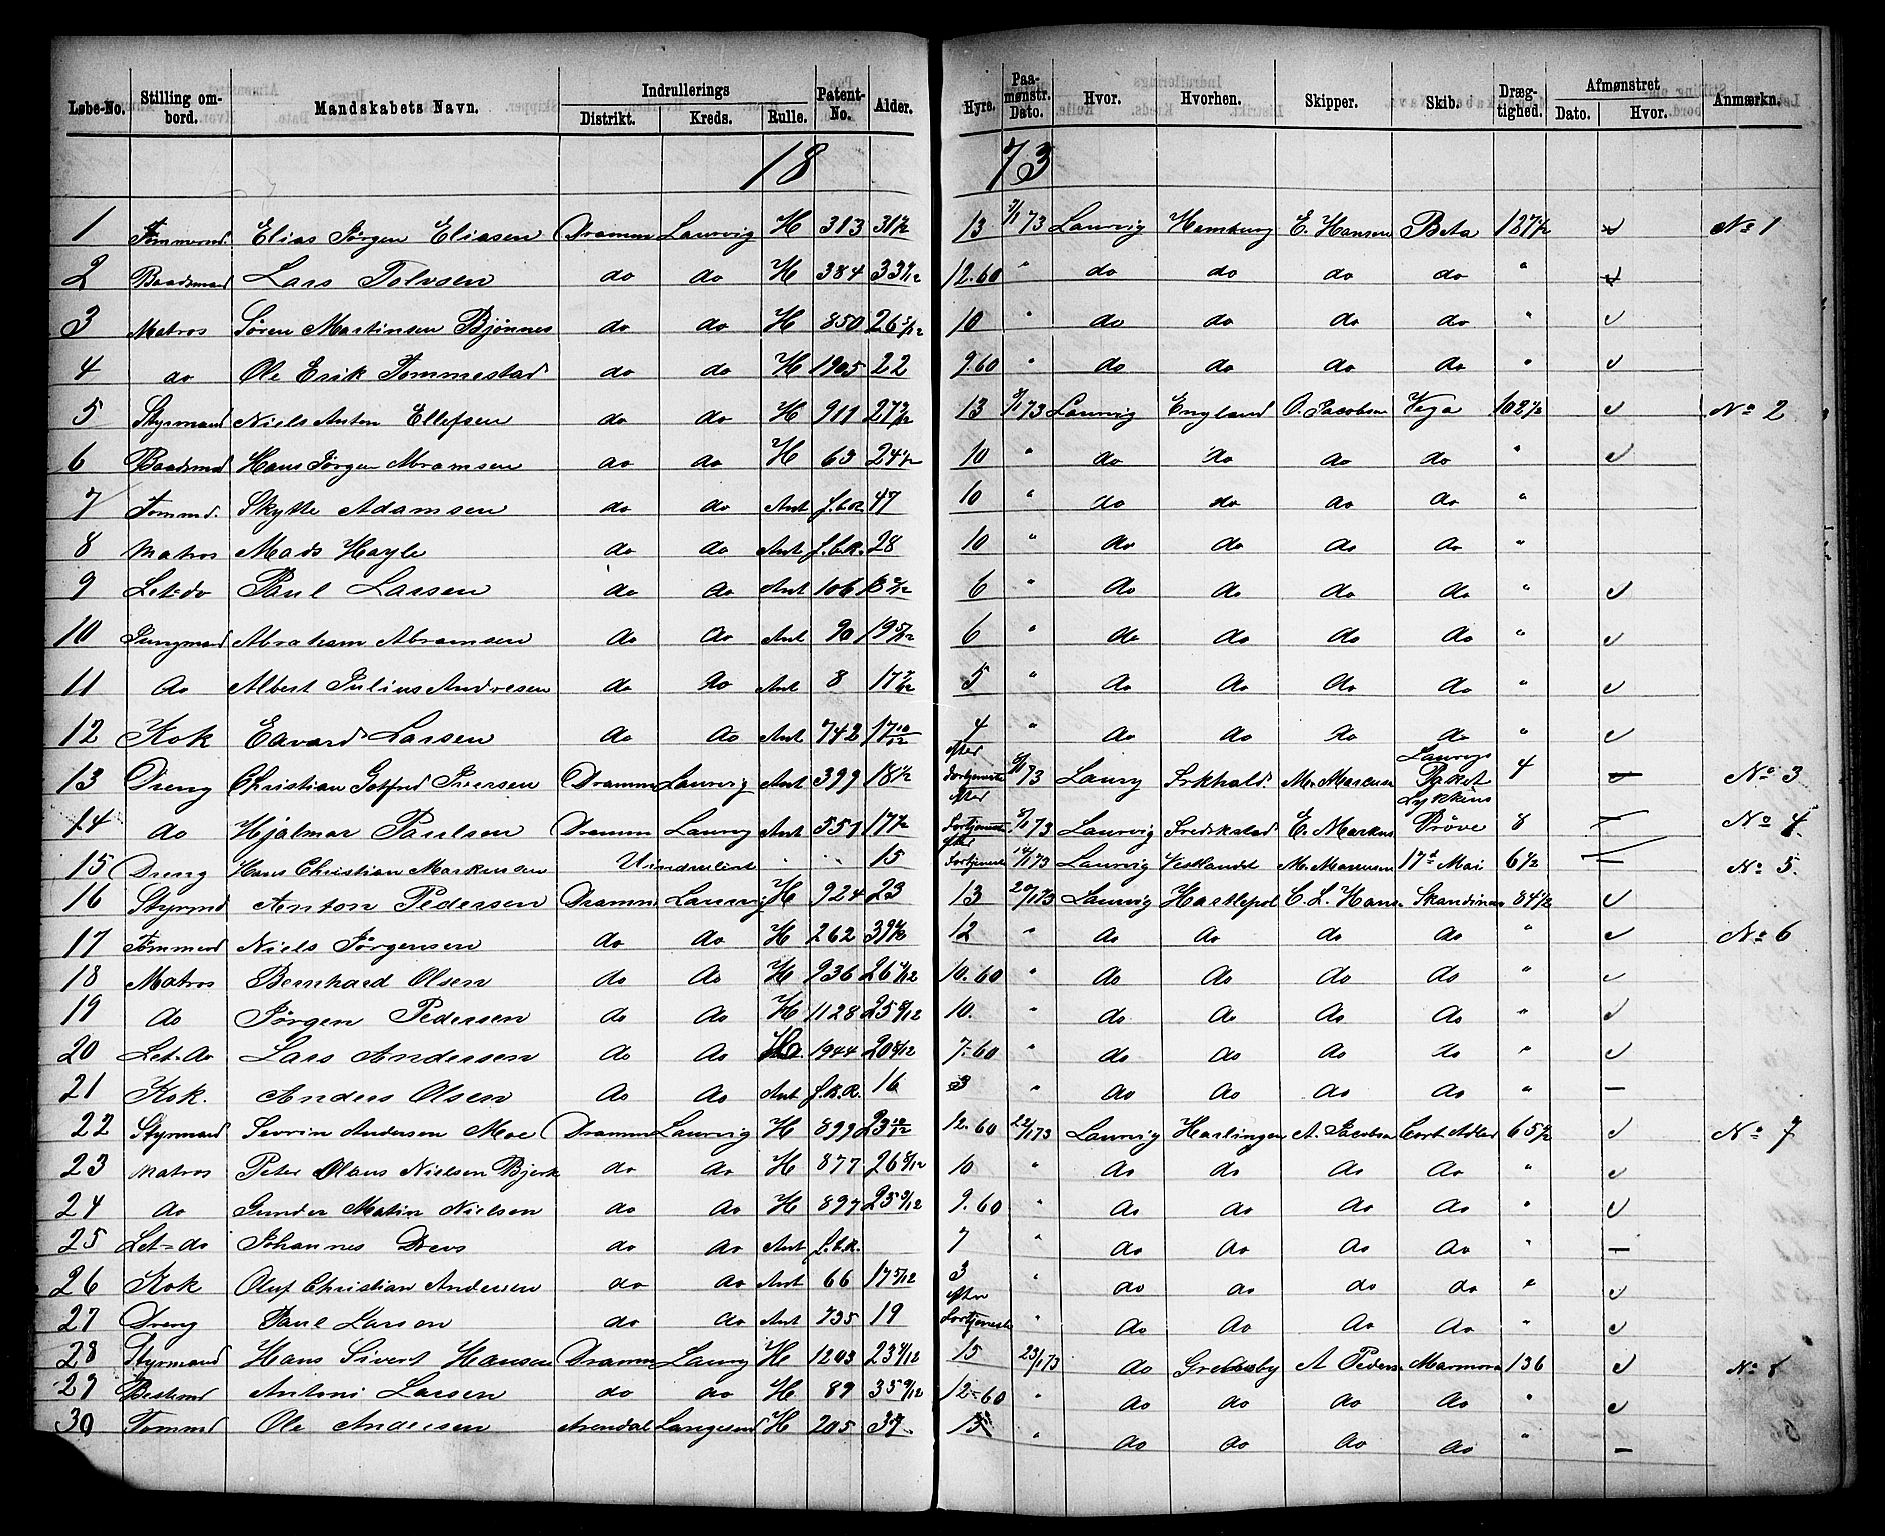 Løbe-No. Stilling ombord. Mandskabets Navn. Indrullerings Distrikt. Kreds. Rulle. Patent-No. Alder. Hyre. Paamønstr. Dato. Hvor. Hvorhen. Skipper. Skib. Drægtighed. Afmønstret Dato. Hvor. Anmærkn.
18 73
1 Tømmermd. Elias Jørgen Eliasen Dramm Laurvig H 313 31½ 13 7/1 73 Laurvig Hamburg E. Hansen Beta 127½ No 1
2 Baadsmand Lars Tolvsen do do H 384 33 12.60 " do do do do "
3 Matros Søren Martinsen Bjønnes do do H 850 26 5/12 10 " do do do do "
4 do Ole Erik Tommestad do do H 1905 22 9.60 " do do do do "
5 Styrmand Niels Anton Ellefsen do do H 911 27 13 73 Laurvig England O. Jacobsen Vega 102½ No 2
6 Baadsmd Hans Jørgen Abramsen do do H 63 24½ 10 " do do do do "
7 Tømmd. Skytte Adamsen do do Ant f.b.R. 47 10 " do do do do "
8 Matros Mads Hayle do do Ant f.b.R. 28 10 " do do do do "
9 Let-do Paul Larsen do do Ant 106 6 " do do do do "
10 Jungmand Abraham Abramsen do do Ant 90 19 5/12 6 " do do do do "
11 do Albert Julius Andresen do do Ant 8 17 5 " do do do do "
12 Kok Edvard Larsen do do Ant 742 17 10/12 4 " do do do do "
13 Dreng Christian Gotfred Iversen Dramm Laurvig Ant 399 18½ efter Fortjeneste 73 Laurv M. Marensen Laurvigs Paket 4 No 3
14 do Hjalmar Paulsen Dramm Laurv Ant 551 17½ efter Fortjeneste 8/1 73 Laurvig Fredrikstad E. Markus Lykkens Prøve 8 No 4.
15 Dreng Hans Christian Markussen Uindrulleret 15 efter Fortjeneste 14/1 73 Laurvig Vestlandet M. Marensen 17d Mai 6½ No 5.
16 Styrmd Anton Pedersen Dramm Laurvig H 924 23 13 20/1 73 Laurvig Hartlepol C. L. Hans Skandinav 84½
17 Tømmermd Niels Jørgensen do do H 262 39 12 " do do do do " No 6
18 Matros Bernhard Olsen do do H 936 26 10.60 " do do do do "
19 do Jørgen Pedersen do do H 1128 25 8/12 10. " do do do do "
20 Let-do Lars Andersen do do H 1944 20 8/12 7-60 " do do do do "
21 Kok. Anders Olsen do do Ant f.b.R. 16 3 " do do do do "
22 Styrmand Sevrin Andersen Moe Dramm Laurvig H 899 23 10/12 12.60 22/1 73 Laurvig Harlingen A. Jacobsen Cort Adler 65½ No 7
23 Matros Peter Olaus Nielsen Bjerk do do H 877 26 8/12 10 " do do do do "
24 do Gunder Matin Nielsen do do H 897 25 9/12 9.60 " do do do do "
25 Let-do Johannes Drevs do do Ant f.b.R. 7 " do do do do "
26 Kok Oluf Christian Andersen do do Ant 66 17 5/12 3 " do do do do "
27 Dreng Paul Larsen do do Ant 735 19 efter Fortjeneste " do do do do "
28 Styrmand Hans Sivert Hansen Dramm Laurv H 1203 23 15 23/1 73 do A Peders Marmora 136 No 8
29 Bestmd Antoni Larsen do do H 89 35 9/12 12-60 " do do do do "
30 Tømmd Ole Andersen Arendal Langesund H 205 37 13 " do do do do "